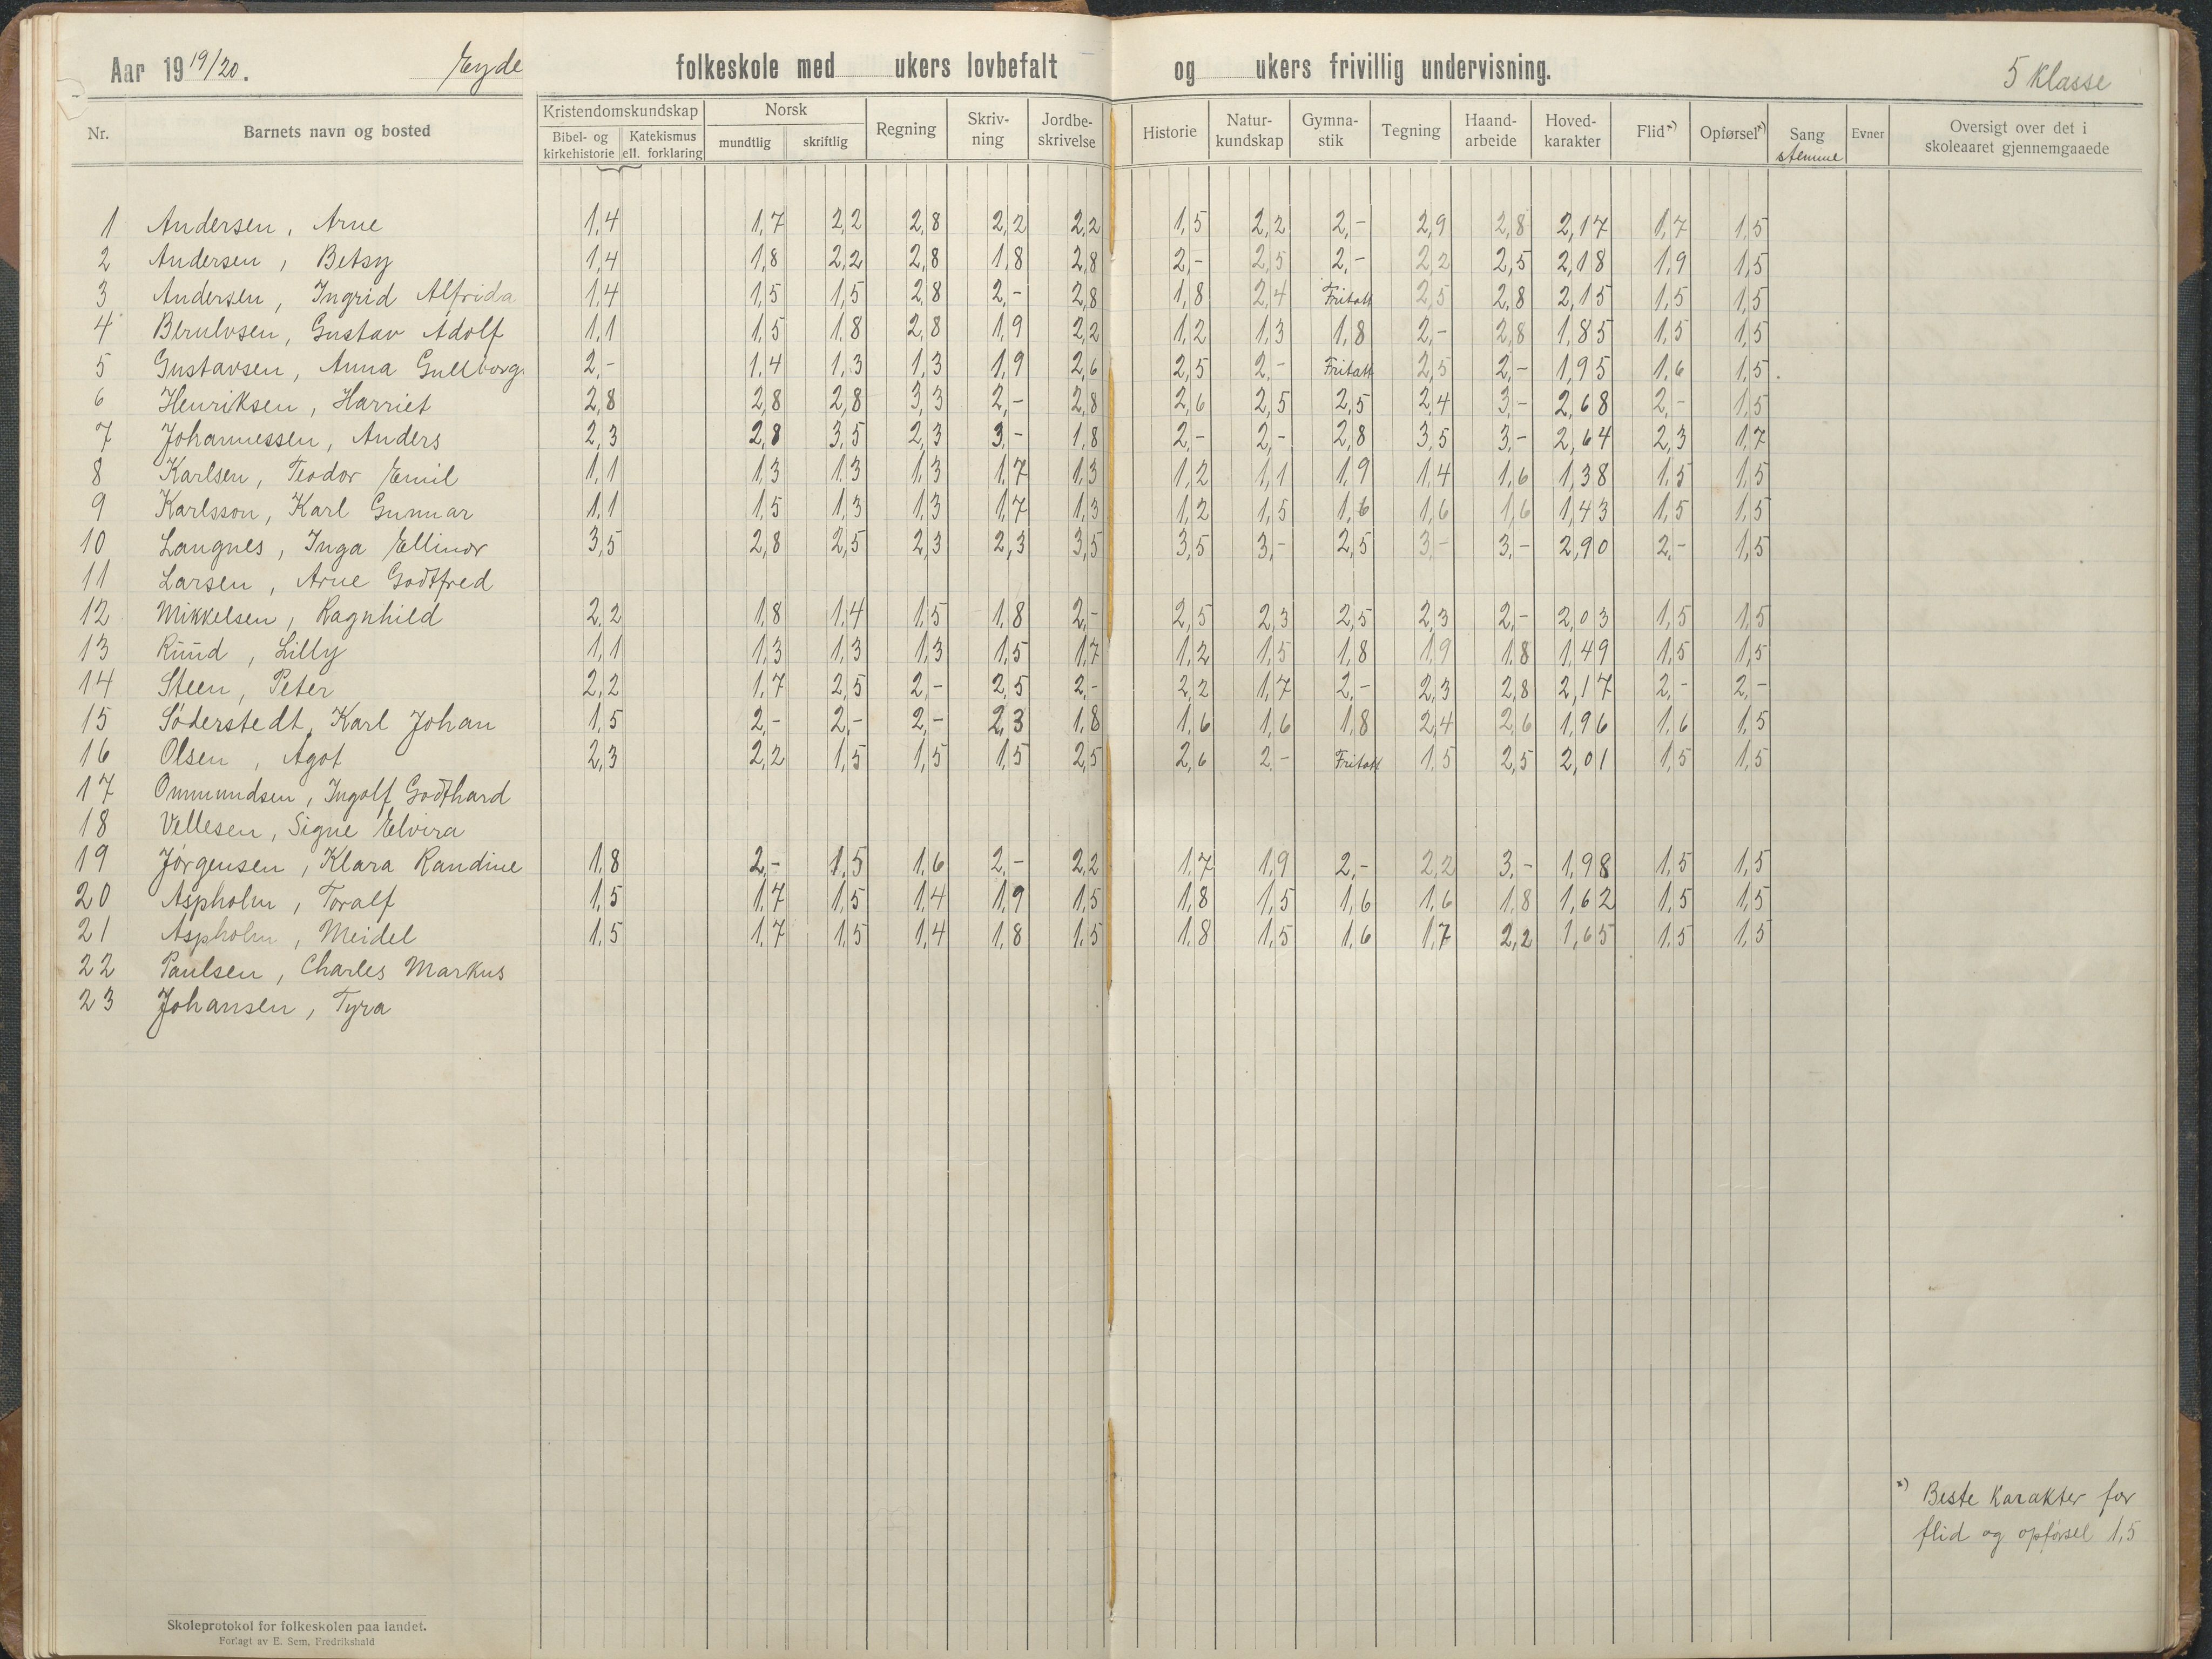 Aar 19 19/20. Eyde folkeskole med ukers lovbefalt og ukers frivillig undervisning. 5 klasse
Nr. Barnets navn og bosted Kristendomskundskap Bibel- og kirkehistorie Katekismus ell. forklaring Norsk mundtlig skriftlig Regning Skriv-ning Jordbe-skrivelse Historie Natur-kundskap Gymna-stik Tegning Haand-arbeide Hoved-karakter Flid*) Opførsel*) Sang stemme Evner Oversigt over det i skoleaaret gjennemgaaede
1 Andersen, Arne 1,4 1,7 2,2 2,8 2,2 2,2 1,5 2,2 2,- 2,9 2,8 2,17 1,7 1,5
2 Andersen, Betsy 1,4 1,8 2,2 2,8 1,8 2,8 2,- 2,5 2,- 2,2 2,5 2,18 1,9 1,5
3 Andersen, Ingrid Alfrida 1,4 1,5 1,5 2,8 2,- 2,8 1,8 2,4 Fritatt 2,5 2,8 2,15 1,5 1,5
4 Berulvsen, Gustav Adolf 1,1 1,5 1,8 2,8 1,9 2,2 1,2 1,3 1,8 2,- 2,8 1,85 1,5 1,5
5 Gustavsen, Anna Gullborg 2,- 1,4 1,3 1,3 1,9 2,6 2,5 2,- Fritatt 2,5 2,- 1,95 1,6 1,5.
6 Henriksen, Harriet 2,8 2,8 2,8 3,3 2,- 2,8 2,6 2,5 2,5 2,4 3,- 2,68 2,- 1,5
7 Johannessen, Anders 2,3 2,8 3,5 2,3 3,- 1,8 2,- 2,- 2,8 3,5 3,- 2,64 2,3 1,7
8 Karlsen, Teodor Emil 1,1 1,3 1,3 1,3 1,7 1,3 1,2 1,1 1,9 1,4 1,6 1,38 1,5 1,5
9 Karlsson, Karl Gunnar 1,1 1,5 1,3 1,3 1,7 1,3 1,2 1,5 1,6 1,6 1,6 1,43 1,5 1,5
10 Langnes, Inga Ellinor 3,5 2,8 2,5 2,3 2,3 3,5 3,5 3,- 2,5 3,- 3,- 2,90 2,- 1,5
11 Larsen, Arne Godtfred
12 Mikkelsen, Ragnhild 2,2 1,8 1,4 1,5 1,8 2,- 2,5 2,3 2,5 2,3 2,- 2,03 1,5 1,5
13 Ruud, Lilly 1,1 1,3 1,3 1,3 1,5 1,7 1,2 1,5 1,8 1,9 1,8 1,49 1,5 1,5
14 Steen, Peter 2,2 1,7 2,5 2,- 2,5 2,- 2,2 1,7 2,- 2,3 2,8 2,17 2,- 2,-
15 Söderstedt, Karl Johan 1,5 2,- 2,- 2,- 2,3 1,8 1,6 1,6 1,8 2,4 2,6 1,96 1,6 1,5
16 Olsen, Agot 2,3 2,2 1,5 1,5 1,5 2,5 2,6 2,- Fritatt 1,5 2,5 2,01 1,5 1,5
17 Ommundsen, Ingolf Godthard
18 Vellesen, Signe Elvira
19 Jørgensen, Klara Randine 1,8 2,- 1,5 1,6 2,- 2,2 1,7 1,9 2,- 2,2 3,- 1,98 1,5 1,5
20 Aspholm, Toralf 1,5 1,7 1,5 1,4 1,9 1,5 1,8 1,5 1,6 1,6 1,8 1,62 1,5 1,5
21 Aspholm, Meidel 1,5 1,7 1,5 1,4 1,8 1,5 1,8 1,5 1,6 1,7 2,2 1,65 1,5 1,5
22 Paulsen, Charles Markus
23 Johansen, Tyra
*) Beste karakter for
flid og opførsel 1,5
Skoleprotokol for folkeskolen paa landet.
Forlagt av E. Sem, Fredrikshald